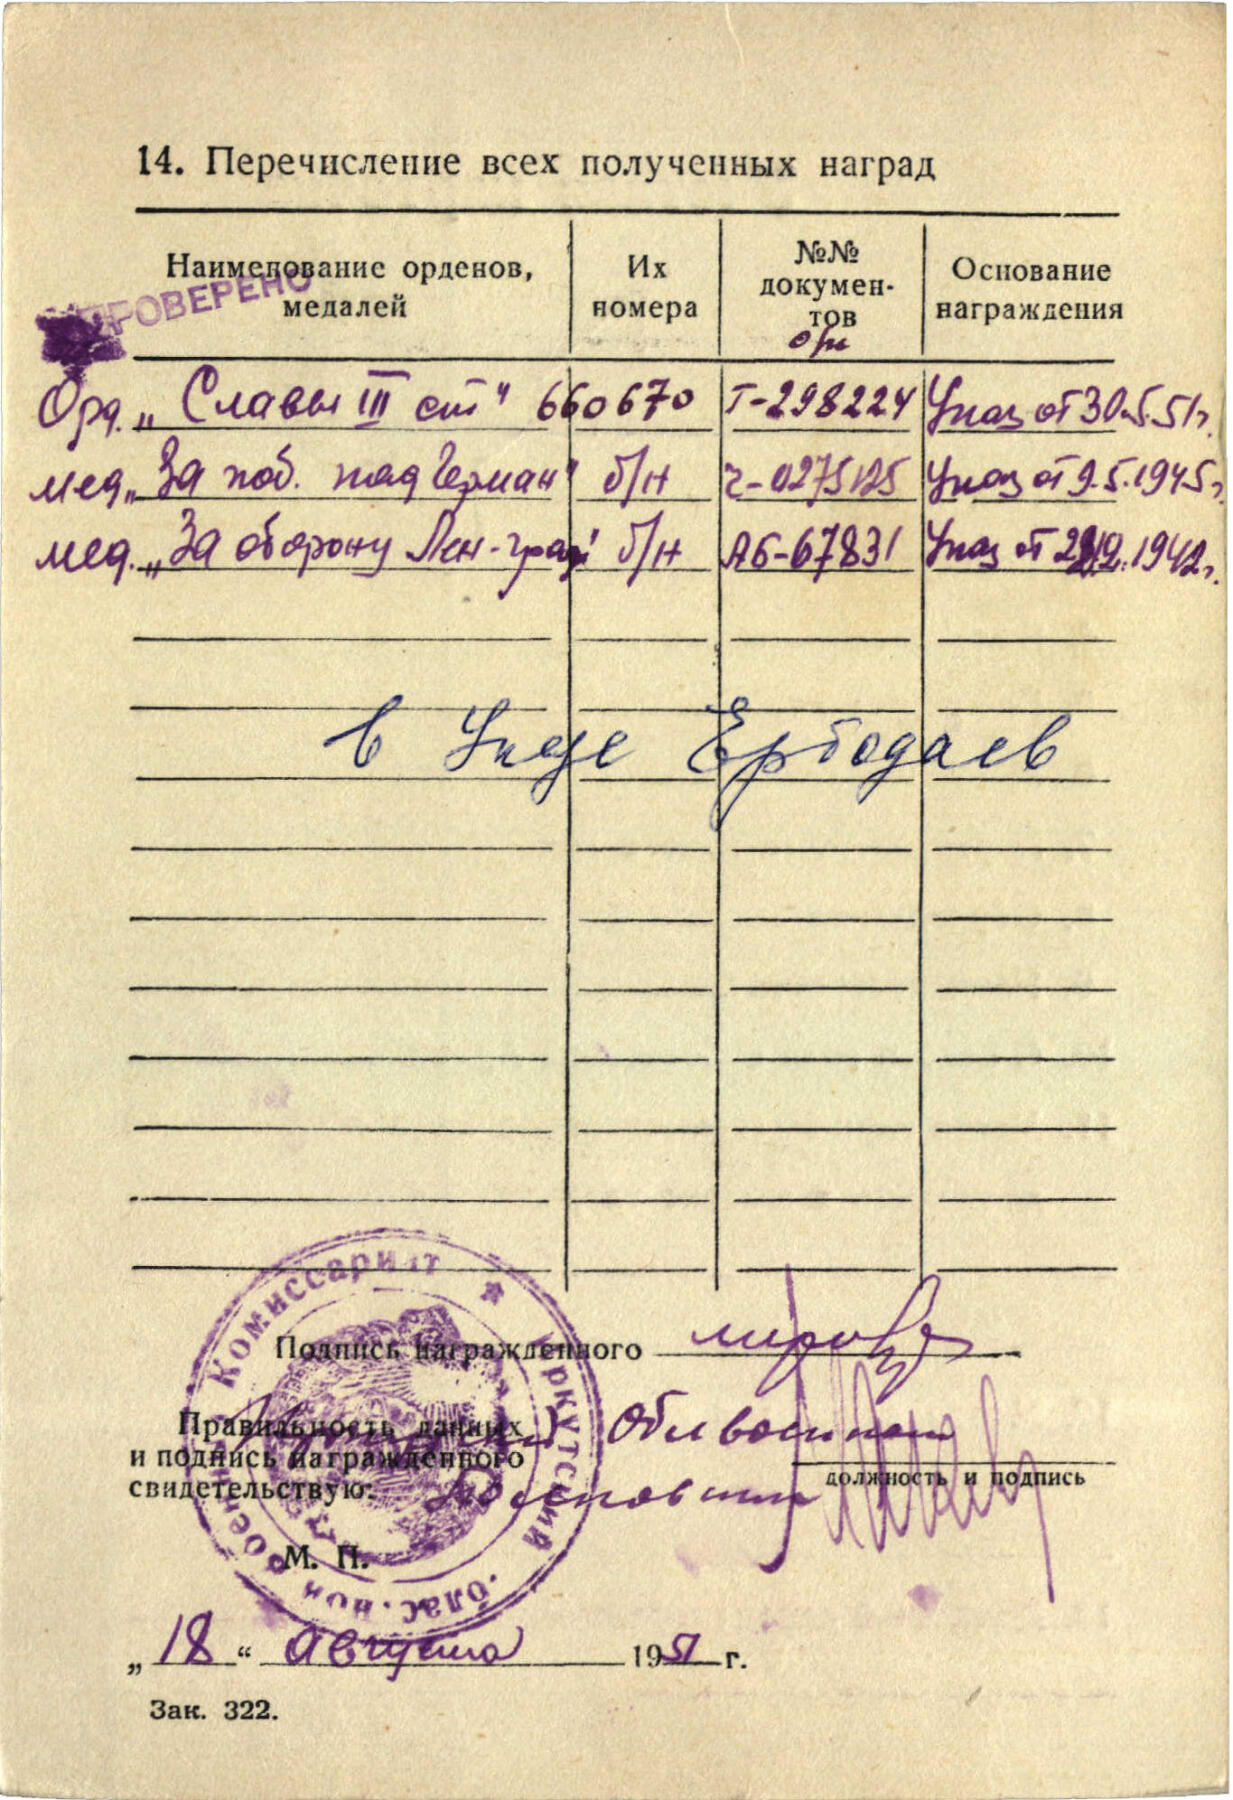 14. Перечисление всех полученных наград
Наименование орденов, медалей
Их номера
№№ докумен-тов
Основание награждения
ПРОВЕРЕНО
Орд. „Славы III ст" 660670 Т-298224 Указ от 30.5.51г.
мед. „За поб. над Герман" б/н Ч-0275125 Указ от 9.5.1945г.
мед. „За оборону Лен-град" б/н АБ-67831 Указ от 1942г.
в Указе Ербодаев
Подпись награжденного
Правильность данных
и подпись награжденного
свидетельствую:
Облвоенком
должность и подпись
Иркутский облас. ной Военный Комиссариат
М. П.
„18" Августа 1951 г.
Зак. 322.